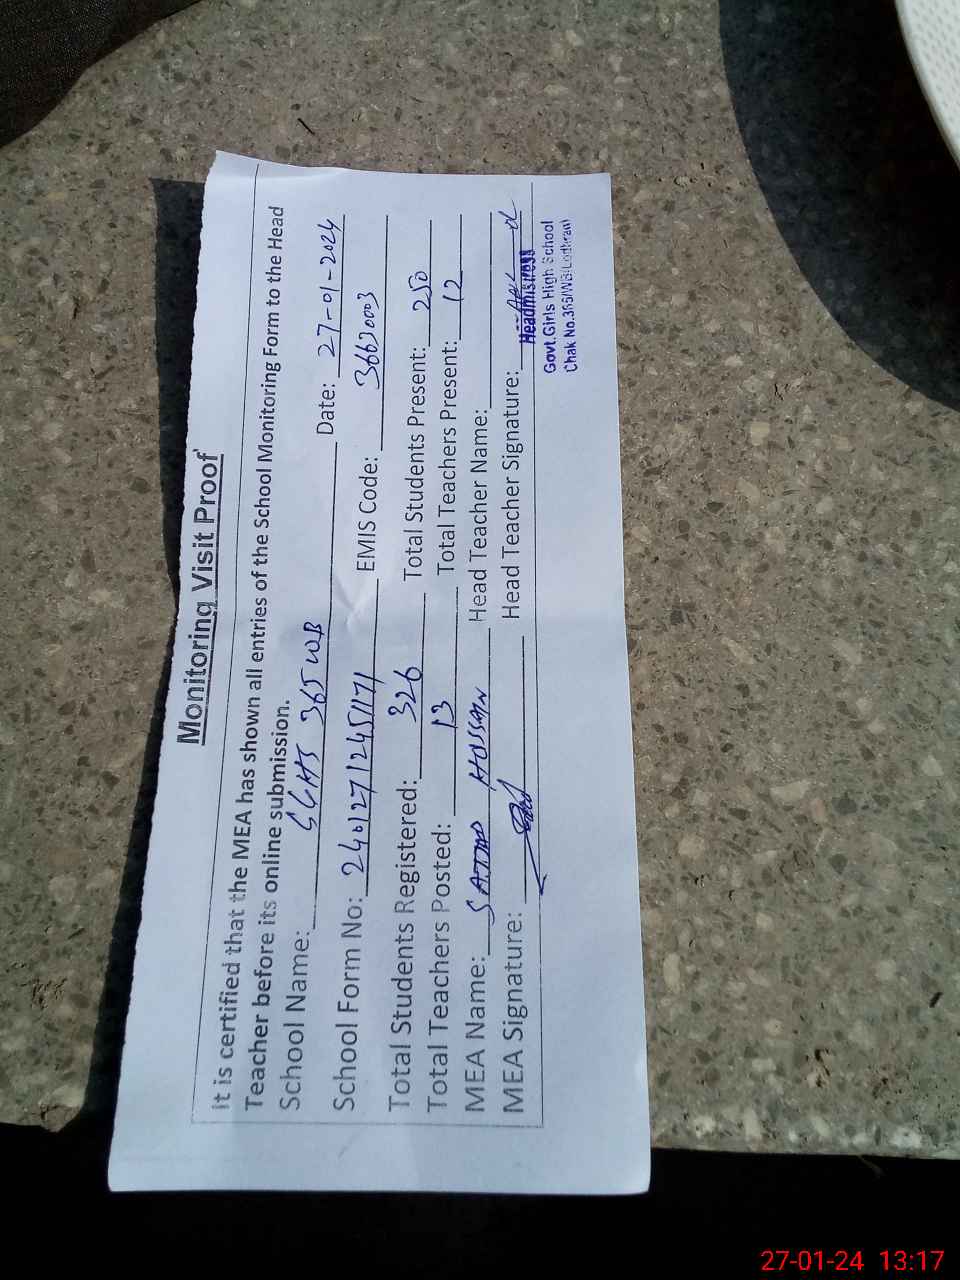 Monitoring Visit Proof
It is certified that the MEA has shown all entries of the School Monitoring Form to the Head
Teacher before its online submission.
School Name: GGHS 365 WB Date: 27-01-2024
School Form No: 24012712451171 EMIS Code: 36630003
Total Students Registered: 326 Total Students Present: 250
Total Teachers Posted: 13 Total Teachers Present: 12
MEA Name: SAJJAD HUSSAIN Head Teacher Name:
MEA Signature: Head Teacher Signature:
Headmistress
Govt.Girls High School
Chak No.365/WB(Lodhran)
27-01-24 13:17